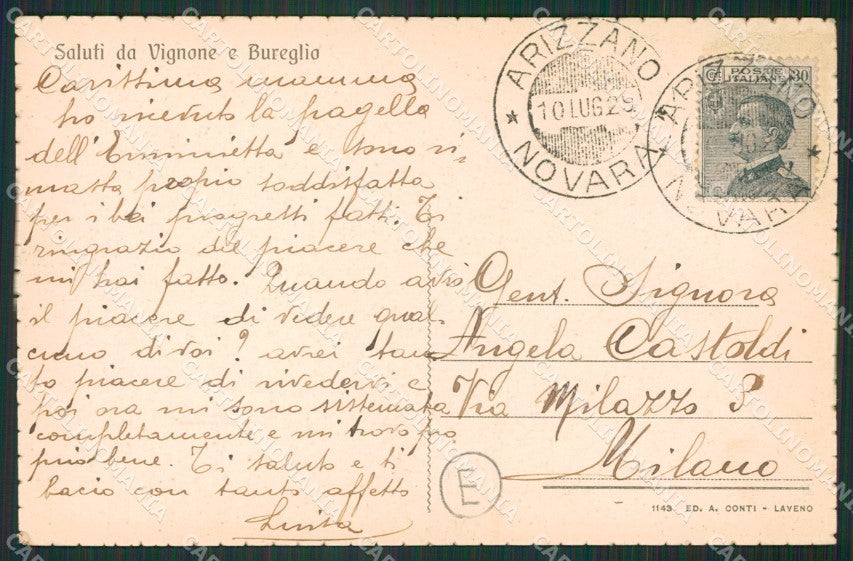 Saluti da Vignone e Bureglio
Carissima mamma
ho ricevuto la pagella
dell'Erminietta e sono ri-
masta propio soddisfatta
per i bei progretti fatti. Ti
ringrazio del piacere che
mi hai fatto. Quando avrò
il piacere di vedere qual-
cuno di voi? avrei tan
to piacere di rivedervi e
poi ora mi sono sistemata
completamente e mi trovo pro
prio bene. Ti saluto e ti
bacio con tanto affetto
ARIZZANO
10 LUG 29
NOVARA
ARIZZANO
NOVARA
POSTE ITALIANE
30
Gent. Signora
Angela Castoldi
Via Milazzo 3
Milano
E
1143 ED. A. CONTI - LAVENO
CARTOLINOMANIA